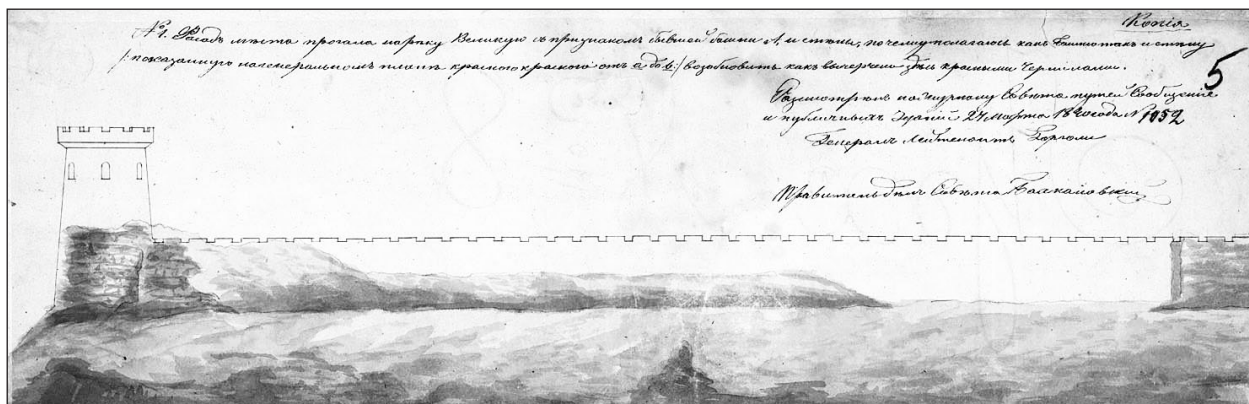 Копія
№ 1. Фасадъ мѣста прогала на рѣку Великую съ признакомъ бывшей башни А, и стѣны, почему полагаюсь какъ башню такъ и стѣну
/: показанную на генеральномъ планѣ красною краскою отъ а до b :/ возобновить какъ вычерчено здѣсь красными чернилами.
5
Разсмотрѣнъ по Совѣта путей Сообщенія
и публичныхъ Зданій 27 Марта 18 года № 1052
Генералъ Лейтенантъ
Правитель дѣлъ Совѣта